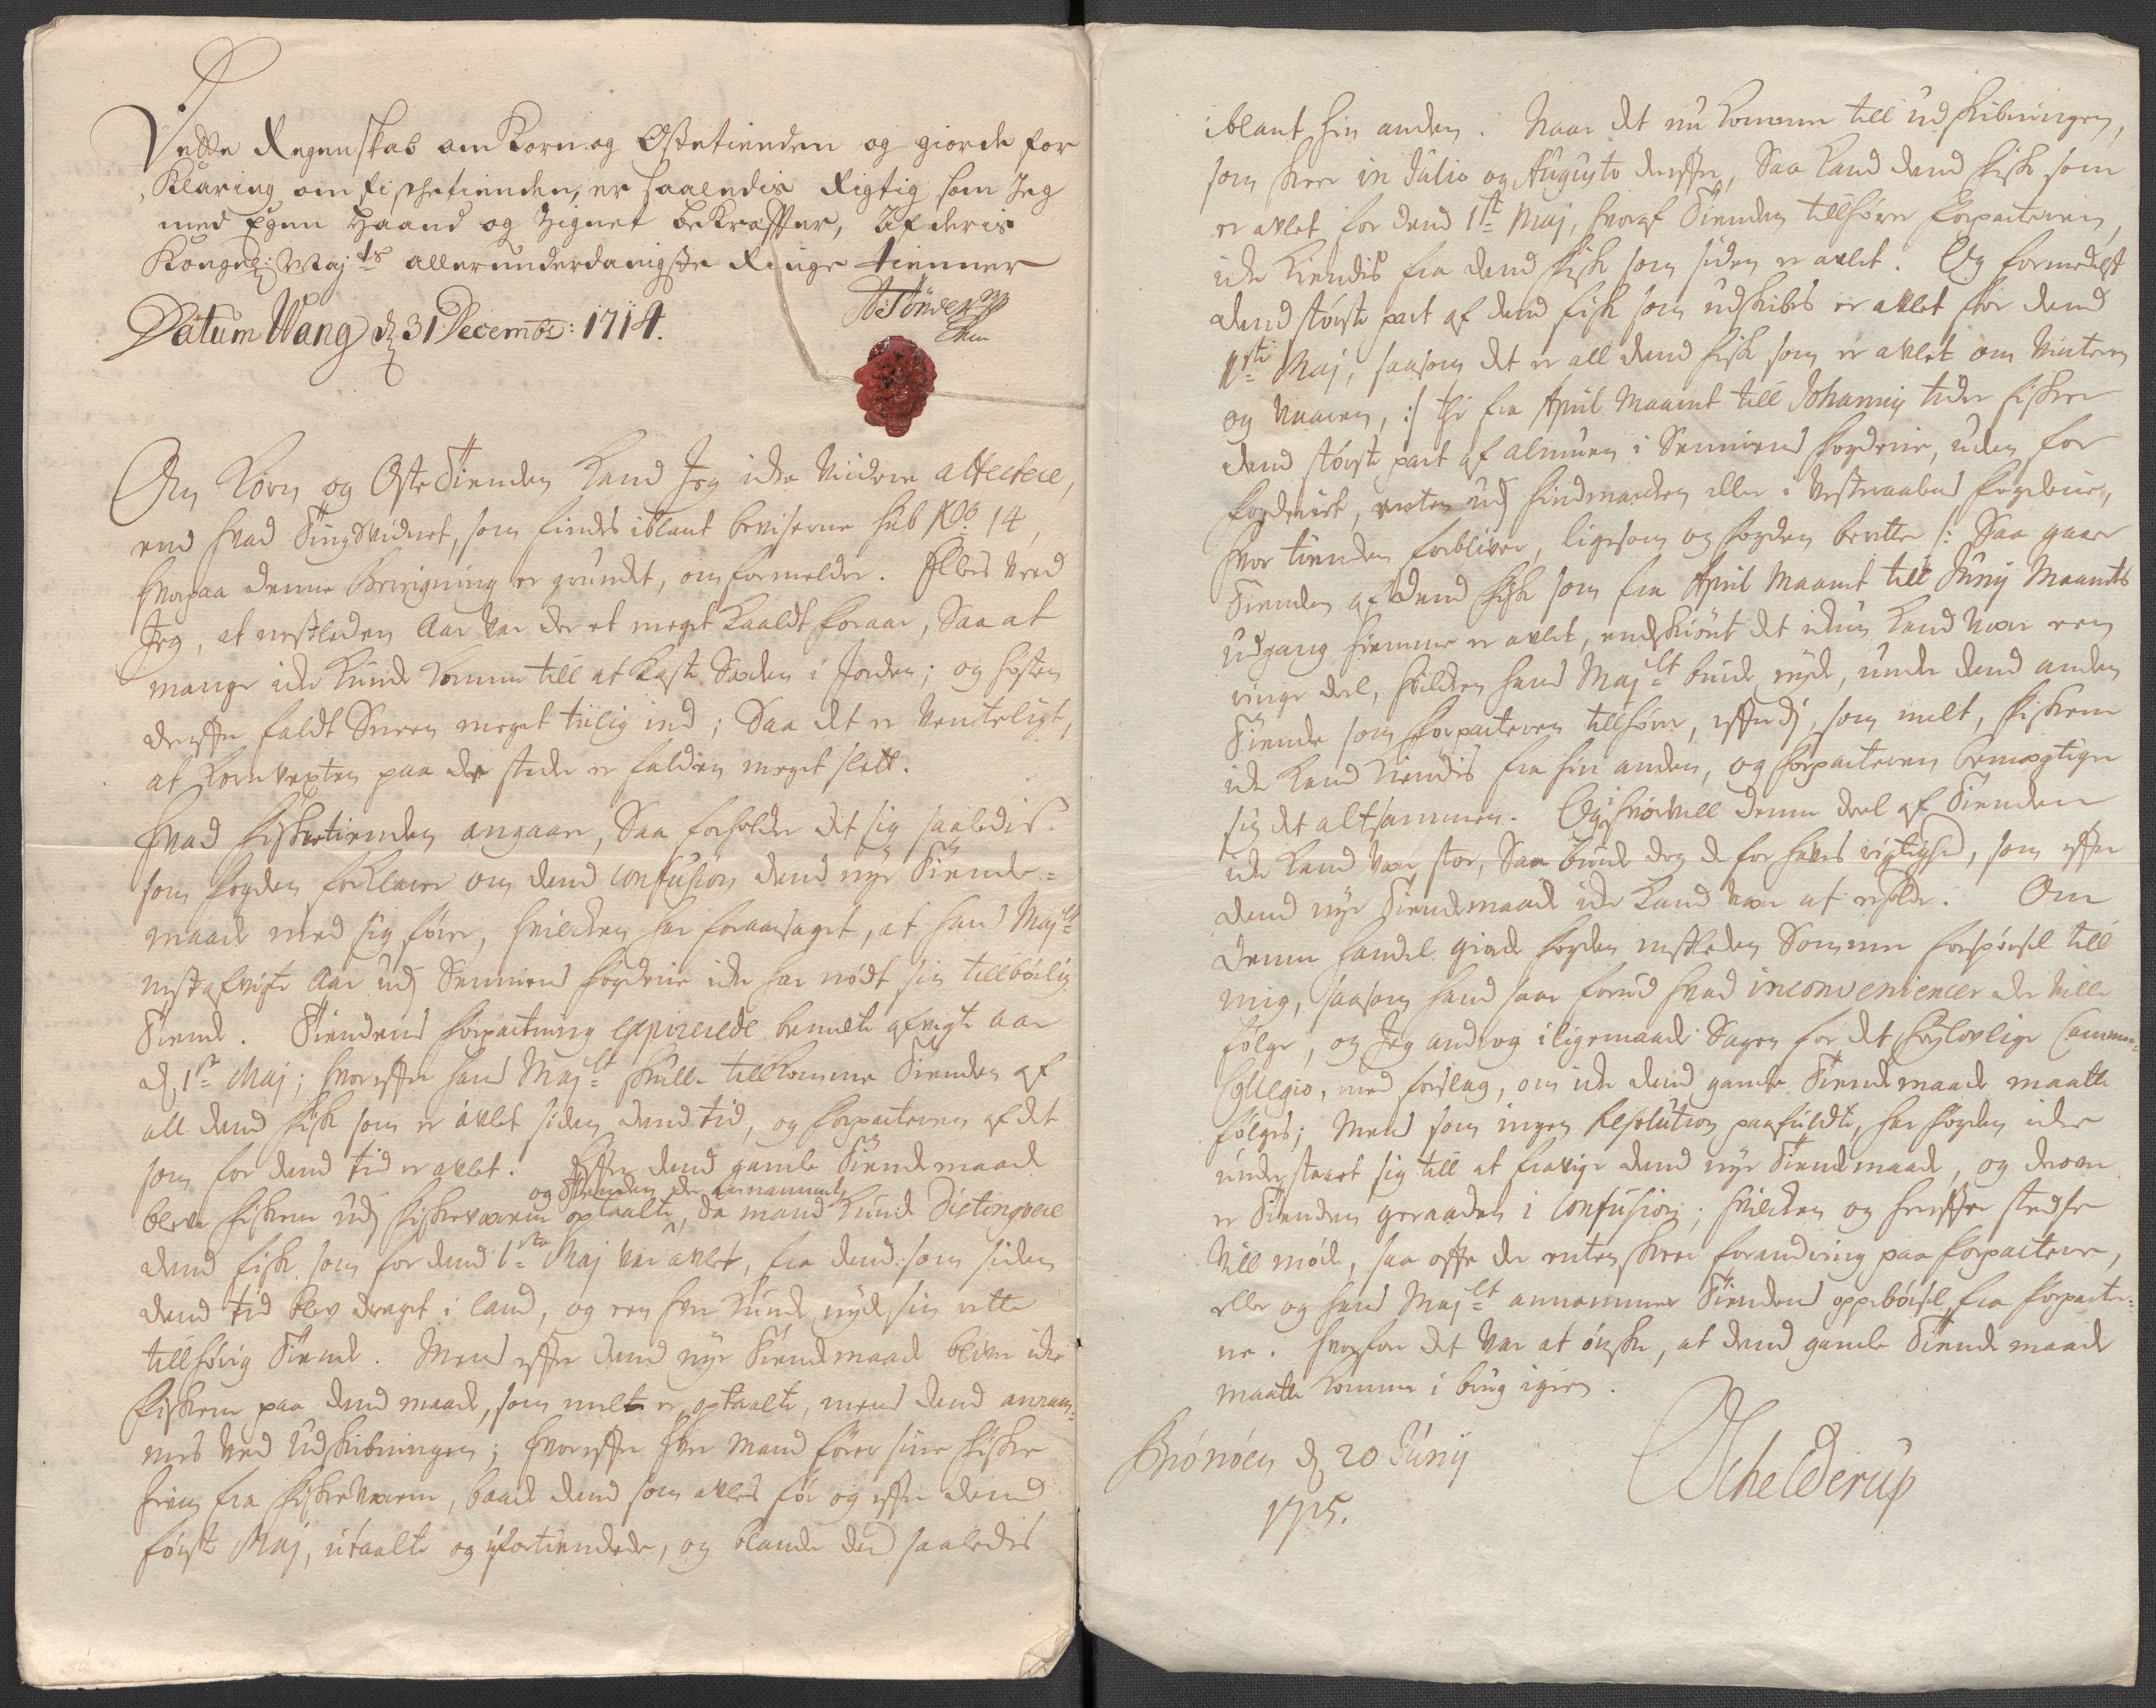 Dette Regenskab om Korn og Ostetienden og giorde for
Klaring om fischetienden, er saaledis Rigtig som Jeg
med Egen Haand og Zignet bekræffter, Af deris
Kongel: Majts allerunderdanigste Ringe tienner
Datum Wang d 31 Decembr: 1714.
Om Korn og Oste Tienden kand Jeg icke viidere attestere,
end hvad Tingsvidnet, som findis iblant beviserne sub No 14,
hvorpaa denne Beregning er grundet, omformelder. Ellers veed
Jeg, at nestleden Aar var der et meget kaaldt foraar, Saa at
mange icke kunde komme till at kaste Sæden i Jorden; og høsten
derefter faldt Sneen meget tiilig ind; Saa det er venteligt,
at kornvexten paa de steder er falden meget slett.
Hvad fisketienden angaaer, Saa forholder det sig saaledis
som fogden forklarer om dend confusion dend nye Tiende-
maade med sig fører, hvilcken har foraarsaget, at hans Majtt
nestafvigte Aar udj Senniens fogderie icke har nødt sin tillbørlig
Tiende. Tiendens forpactning expirerede bemelte afvigte aar
d 1ste Maj; hvorefter hans Majtt skulle tillkomme Tienden af
all dend fisk som er avlet siden dend tid, og forpacteren af det
som for dend tid er avlet. Efter dend gamle Tiende maade
og Tienden der annammet
bleve fiskene udj fiskeværene optaalte, da mand kunde distingvere
dend fisk som for dend 1ste Maj var avlet, fra dend som siden
dend tid blev draget i land, og een hver kunde nyde sin rette
tillhørig Tiende. Mens efter dend nye Tiendemaade bliver icke
fiskene paa dend maade, som melt er, optaalte, mens dend annam-
mes ved Udskibningen; hvorefter hver mand fører sine fiske
hiem fra fiskeværene, baade dend som avles før og efter dend
første Maj, utaalte og ufortiendede, og blande dend saaledis
iblant hin anden. Naar det nu kommer till udskibningen,
som skeer in Julio og Augusto derefter, Saa kand dend fisk som
er avlet for dend 1ste Maj, hvoraf Tienden tillhører forpacteren,
icke kiendis fra dend fisk som siden er avlet. Og formedelst
dend største part af dend fisk som udskibes er avlet før dend
1ste Maj, saasom det er all dend fisk som er avlet om Vinteren
og Vaaren, :/ thi fra April Maanet till Johannis tider fisker
dend største part af almuen i Senniens fogderie, uden for
fogderiet, enten udj findmarcken eller i Vesteraalens fogderie,
hvor tienden forbliver, ligesom og fogden beretter /: Saa gaaer
Tienden af dend fisk som fra April Maanet till Junij Maanets
Udgang hiemme er avlet, endskiønt det icke kand være een
ringe deel, hvilcken hans Majtt burde nyde, under dend anden
Tiende som forpacteren tillhører, efterdj, som melt, fiskene
icke kand kiendis fra hin anden, og forpacteren bemægtiger
sig det altsammen. Og i hvorvell denne deel af Tienden
icke kand være stor, Saa burde dog de for haves rigtighed, som efter
dend nye Tiendemaade icke kand være at erholde. Om
denne handel giorde fogden nestleden Sommer forspørsel till
mig, saasom hand saae forud hvad inconveniencer der ville
følge, og Jeg androg iligemaade Sagen for det høylovlige Cammer-
Collegio, med forslag, om icke dend gamle Tiendemaade maatte
følges; Mens som ingen Resolution paafuldte, har fogden icke
understaaet sig till at fravige dend nye Tiendemaade, og derover
er Tienden geraaden i confusion; hvilcken og herefter stedse
vill møde, saa ofte der enten skeer forandring paa forpactere,
eller og hans Majtt annammer Tiendens oppebørsel fra forpacter-
ne. Hvorfor det var at ønske, at dend gamle Tiende maade
maatte komme i brug igien.
Brónóen d 20 Junij
1715.
Schelderup